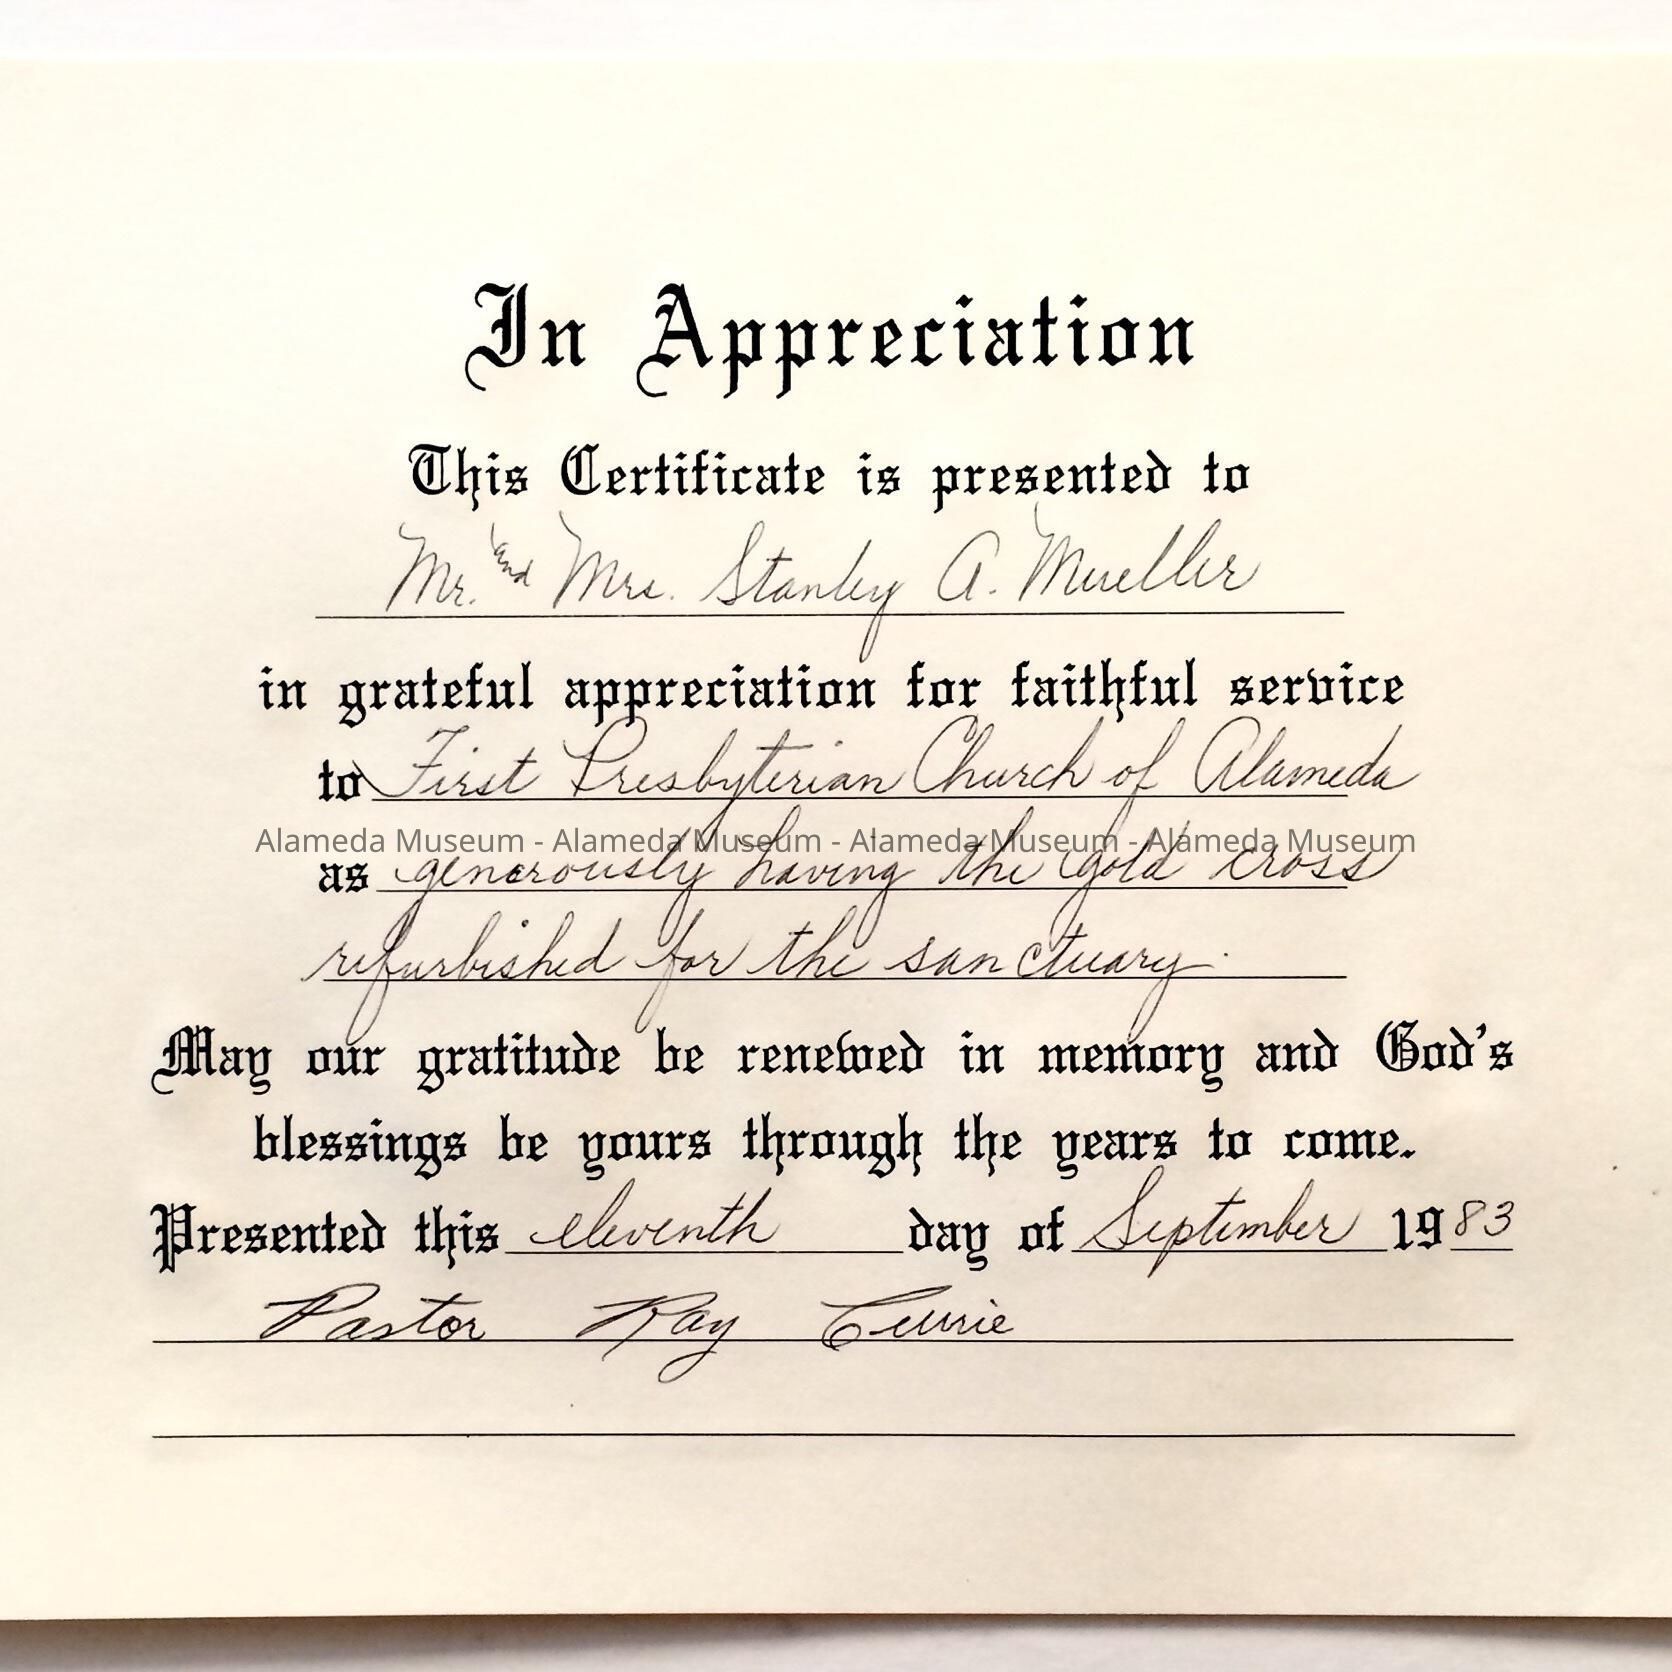 In Appreciation
This Certificate is presented to
Mr. and Mrs. Stanley A. Mueller
in grateful appreciation for faithful service
to First Presbyterian Church of Alameda
Alameda Museum - Alameda Museum - Alameda Museum - Alameda Museum
as generously having the gold cross
refurbished for the sanctuary.
May our gratitude be renewed in memory and God's
blessings be yours through the years to come.
Presented this eleventh day of September 1983
Pastor Ray Currie